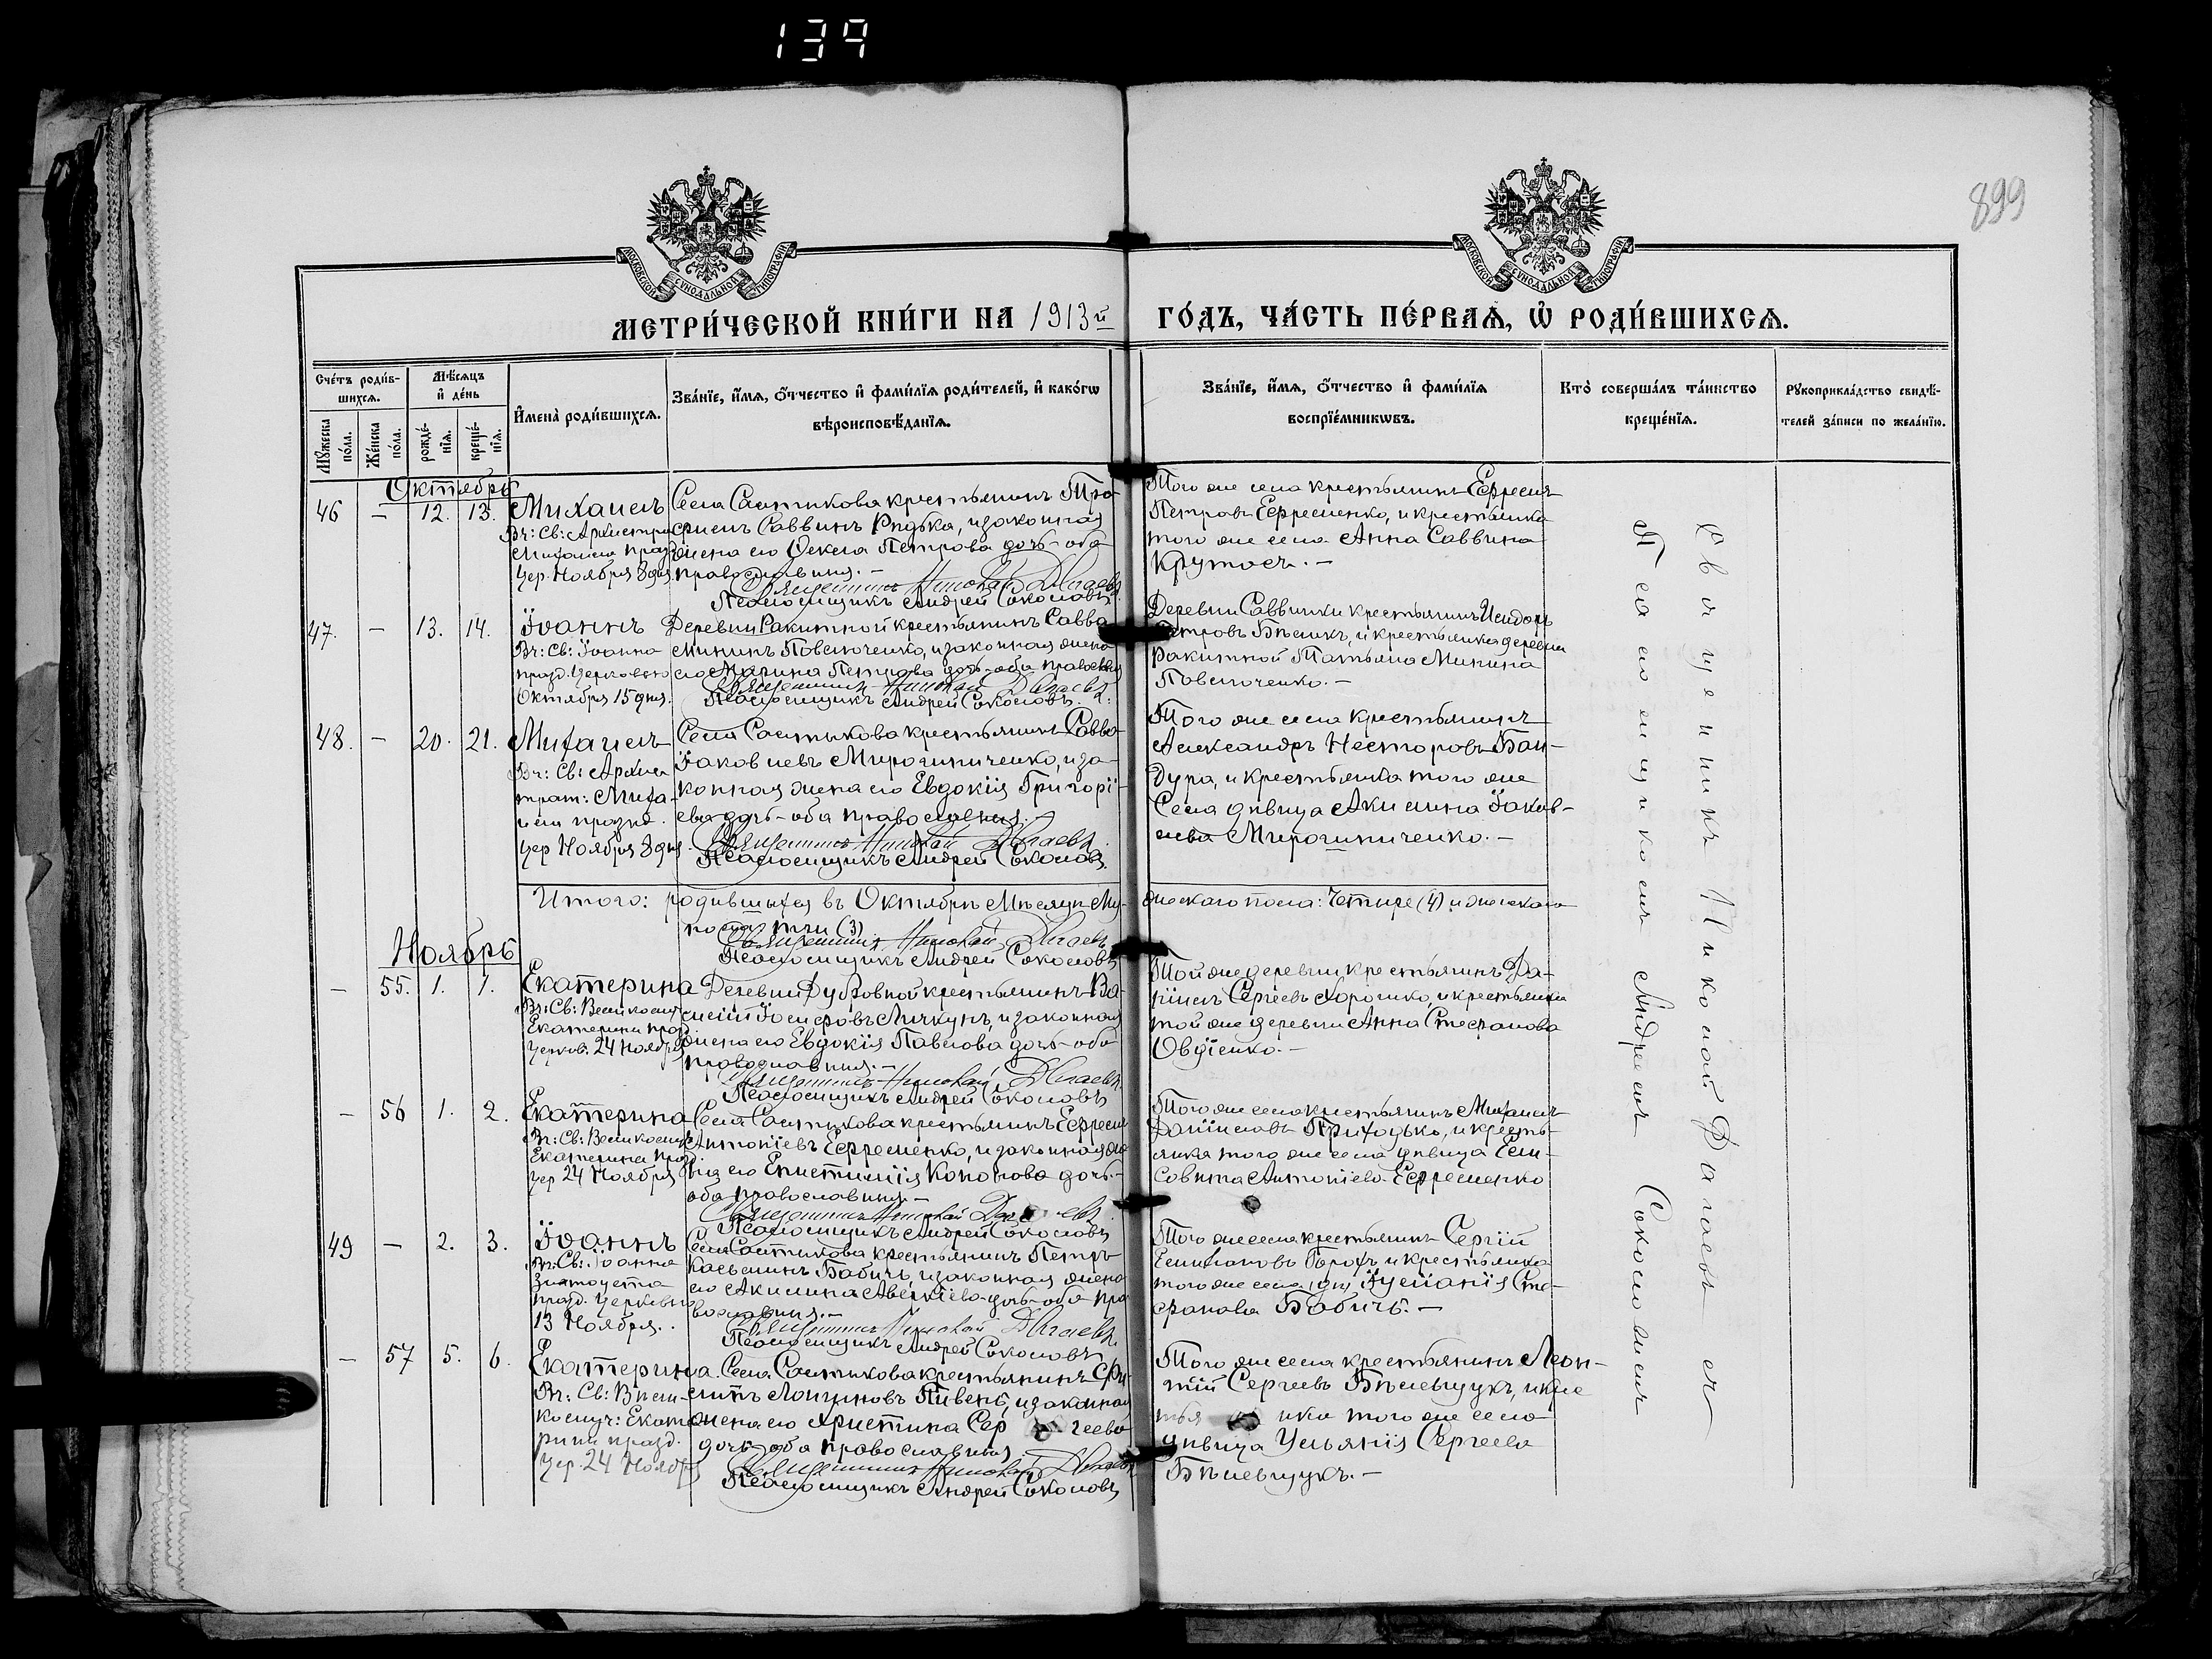 139
899
МОСКОВСКОЙ СУНОДАЛЬНОЙ ТИПОГРАФІИ
МОСКОВСКОЙ СУНОДАЛЬНОЙ ТИПОГРАФІИ
МЕТРИ́ЧЕСКОЙ КНИ́ГИ НА 1913й
ГО́ДЪ, ЧА́СТЬ ПЕ́РВАѦ, Ѡ҆ РОДИ́ВШИХСѦ.
Сче́тъ роди́в-
шихсѧ.
Мꙋжеска по́ла.
Же́нска по́ла.
Мѣ́сѧцъ
и҆ де́нь
рожде́-
нїѧ.
креще́-
нїѧ.
И҆мена̀ роди́вшихсѧ.
Зва́нїе, и҆́мѧ, ѻ҆́тчество и҆ фами́лїѧ роди́телей, и҆ како́гѡ
вѣроисповѣ́данїѧ.
Зва́нїе, и҆́мѧ, ѻ҆́тчество и҆ фами́лїѧ
воспрїе́мникѡвъ.
Кто̀ соверша́лъ та́инство
креще́нїѧ.
Рꙋкоприкла́дство свидѣ́-
телей за́писи по жела́нїю.
Октябрь
46 — 12. 13.
Михаилъ
Вч: Св: Архистр
Михаила праз
Цер. Ноября 8 дня.
Села Салтикова крестьянинъ Тро-
фимъ Саввинъ Рядька, и законная
жена его Фекла Петрова дочь - оба
православния. —
Священникъ Николай Дягаевъ.
Псаломщикъ Андрей Соколовъ
Того же села крестьянинъ Ефремъ
Петровъ Ефременко, и крестьянка
того же села Анна Саввина
Крутось. —
47. — 13. 14.
Іоаннъ
Вч: Св: Іоанна
празд. Церковью
Октября 15 дня.
Деревни Ракитной крестьянинъ Савва
Мининъ Повелюченко, и законная жена
его Марина Петрова дочь - оба православ
Священникъ Николай Дягаевъ
Псаломщикъ Андрей Соколовъ.
Деревни Саввинки крестьянинъ Исидоръ
Петровъ Бѣликъ, и крестьянка деревни
Ракитной Татьяна Минина
Повелюченко. —
48. — 20. 21.
Михаилъ
Вч: Св: Архис
трат: Миха-
ила празд.
Цер Ноября 8 дня.
Села Салтыкова крестьянинъ Савва
Іаковлевъ Мирошниченко, и за-
конная жена его Евдокія Григорі-
ева дочь - оба православния. —
Священникъ Николай Дягаевъ.
Псаломщикъ Андрей Соколовъ.
Того же села крестьянинъ
Александръ Несторовъ Бан-
дура, и крестьянка того же
Села дѣвица Акилина Іаков-
лева Мирошниченко. —
Итого: родившихся въ Октябрѣ Мѣсяцѣ Му-
жескаго пола: Четире (4) и женскаго
пола три (3)
Священникъ Николай Дягаевъ
Псаломщикъ Андрей Соколовъ
Ноябрь
— 55. 1. 1.
Екатерина
Вч: Св: Великомуч
Екатерини праз.
Церков. 24 Ноября
Деревни Дубровной крестьянинъ Ва-
силій Іосифовъ Личкунъ, и законная
жена его Евдокія Павлова дочь - оба
православния. —
Священникъ Николай Дягаевъ.
Псаломщикъ Андрей Соколовъ
Той же деревни крестьянинъ Да-
ніилъ Сергѣевъ Хорошко, и крестьянка
той же деревни Анна Стефанова
Овдіенко. —
— 56 1. 2.
Екатерина
Вч: Св: Великомуч
Екатерина праз.
Цер 24 Ноября
Села Салтикова крестьянинъ Ефремъ
Антоніевъ Ефременко, и законная же
на его Епистимія Кононова дочь. -
оба православния. —
Священникъ Николай
Псаломщикъ Андрей Соколовъ
Того же села крестьянинъ Михаилъ
Даніиловъ Приходько, и кресть-
янка того же села дѣвица Ели-
савета Антоніева Ефременко
49 — 2. 3.
Іоаннъ
Вч: Св: Іоанна
Златоуста
празд. Церковью
13 Ноября.
Села Салтикова крестьянинъ Петръ
Касьянинъ Бабичъ, и законная жена
его Акилина Аверкіева дочь - оба пра
вославния. —
Священникъ Николай Дягаевъ.
Псаломщикъ Андрей Соколовъ
Того же села крестьянинъ Сергій
Емиліановъ Горохъ и крестьянка
того же села, дѣв Іуліанія Сте-
фанова Бабичъ. —
— 57 5. 6.
Екатерина
Вч: Св: Вели-
комуч: Екате
рини празд.
Цер. 24 Ноябр
Села Салтикова крестьянинъ Фи-
липъ Логиновъ Пивень, и законная
жена его Христина Сергеева
дочь - оба православния
Священникъ Николай Дягаевъ
Псаломщикъ Андрей Соколовъ
Того же села крестьянинъ Леон-
тій Сергеевъ Бѣлевцукъ, и кре
стьянка того же села
дѣвица Ульянія Сергеева
Бѣлевцукъ. —
Священникъ Николай Дягаевъ
Псаломщикомъ Андреемъ Соколовимъ